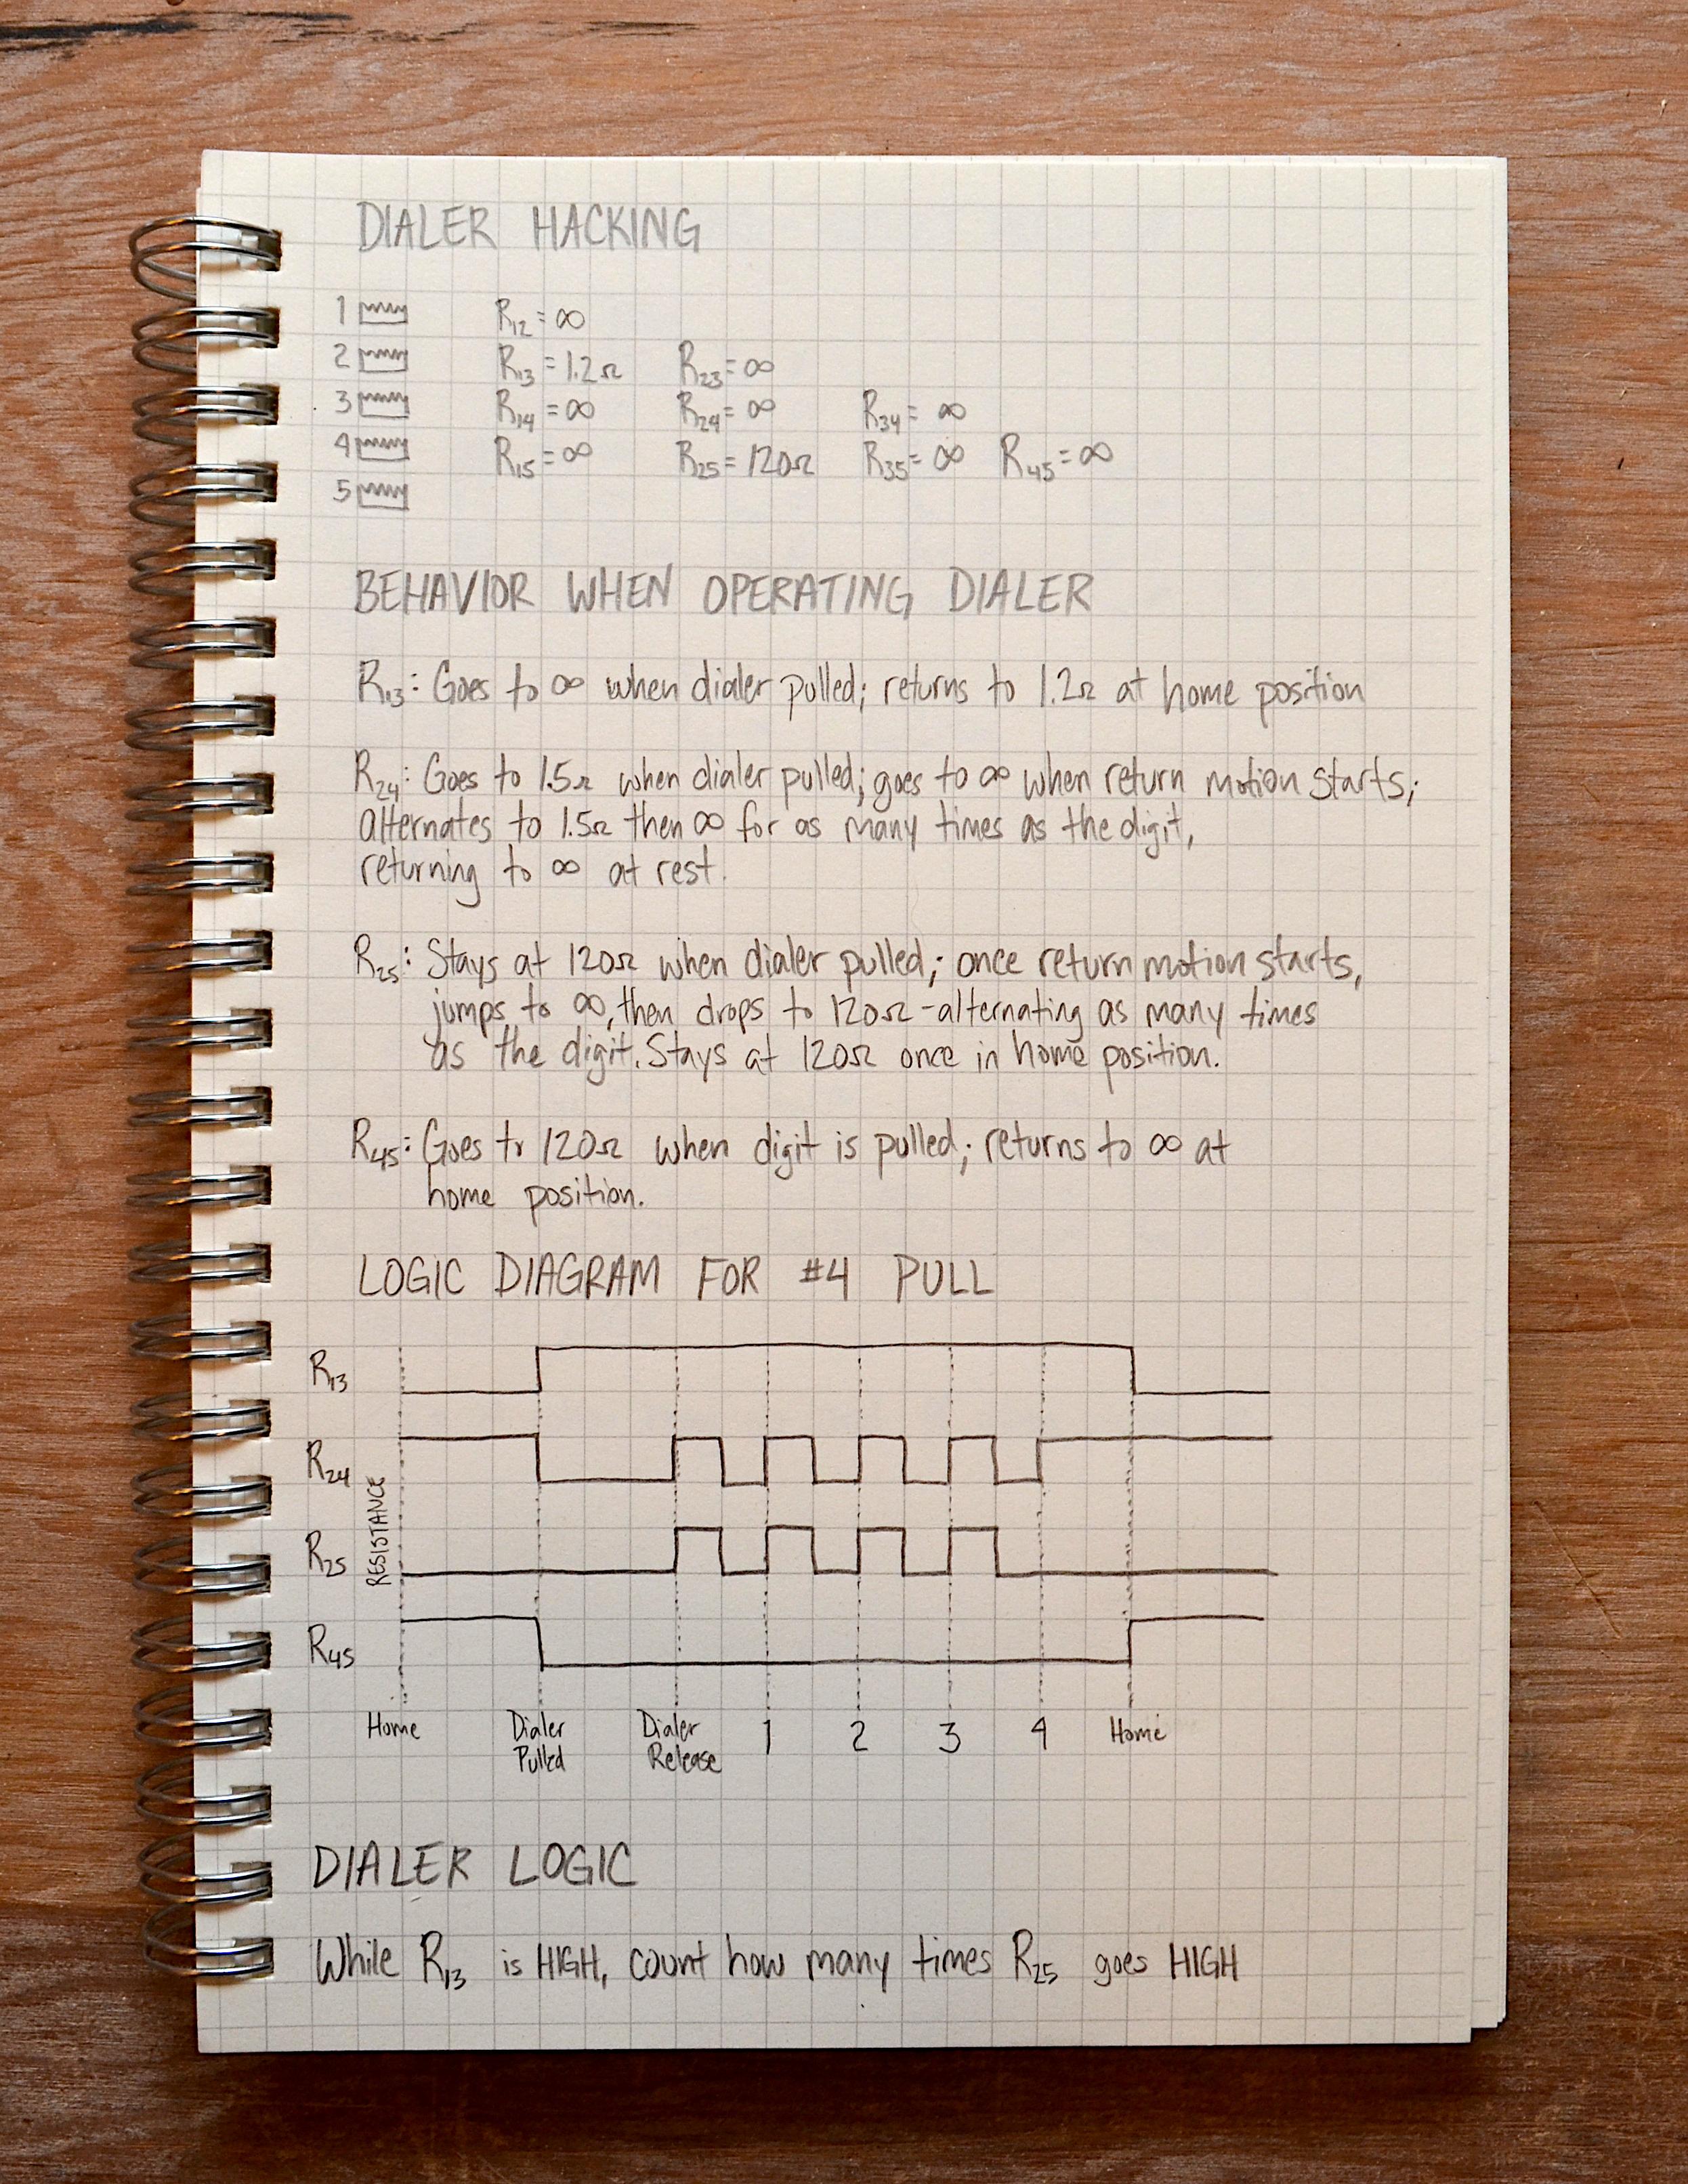 DIALER HACKING
1 R12 = ∞
2 R13 = 1.2Ω R23 = ∞
3 R14 = ∞ R24 = ∞ R34 = ∞
4 R15 = ∞ R25 = 120Ω R35 = ∞ R45 = ∞
5
BEHAVIOR WHEN OPERATING DIALER
R13: Goes to ∞ when dialer pulled; returns to 1.2Ω at home position
R24: Goes to 1.5Ω when dialer pulled; goes to ∞ when return motion starts;
alternates to 1.5Ω then ∞ for as many times as the digit,
returning to ∞ at rest.
R25: Stays at 120Ω when dialer pulled; once return motion starts,
jumps to ∞, then drops to 120Ω - alternating as many times
as the digit. Stays at 120Ω once in home position.
R45: Goes to 120Ω when digit is pulled; returns to ∞ at
home position.
LOGIC DIAGRAM FOR #4 PULL
R13
R24
RESISTANCE
R25
R45
Home Dialer Dialer 1 2 3 4 Home
Pulled Release
DIALER LOGIC
While R13 is HIGH, count how many times R25 goes HIGH